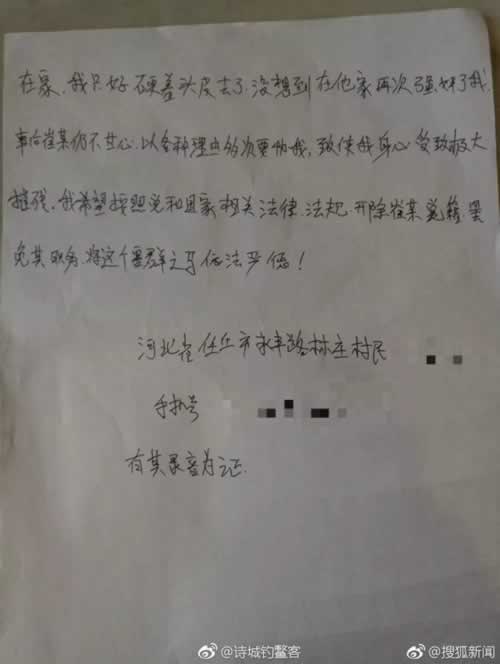 在家，我只好硬着头皮去了，没想到在他家再次强奸了我，
事后崔某仍不甘心，以各种理由多次要胁我，致使我身心受到极大
摧残，我希望按照党和国家相关法律、法规，开除崔某党籍，罢
免其职务，将这个害群之马依法严惩！
河北省任丘市永丰路林庄村民
手机号
有其录音为证.
@诗城钓鳌客
@搜狐新闻